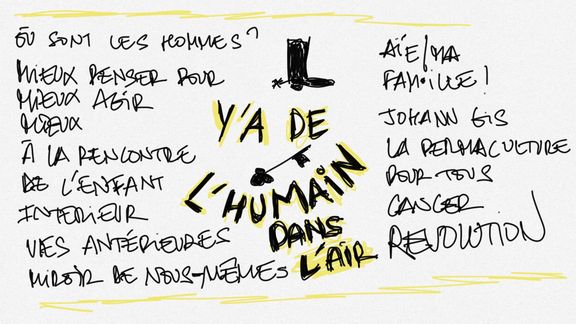 OÙ SONT LES HOMMES?
MIEUX PENSER POUR
MIEUX AGIR
MIEUX
À LA RENCONTRE
DE L'ENFANT
INTERIEUR
VIES ANTÉRIEURES
MIROIR DE NOUS-MÊMES
Y'A DE
L'HUMAIN
DANS
L'AIR
AÏE! MA
FAMILLE!
JOHANN GIS
LA PERMACULTURE
POUR TOUS
CANCER
REVOLUTION